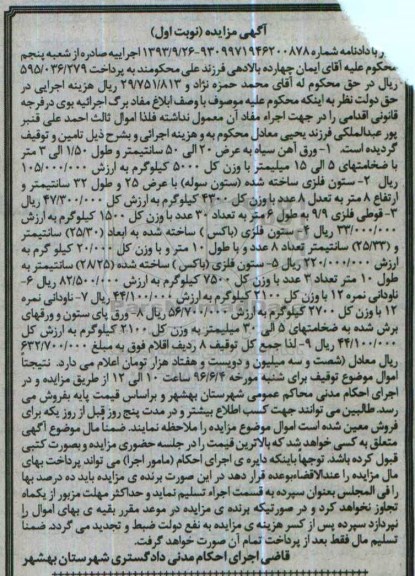 آگهی مزایده (نوبت اول)
ر با دادنامه شماره ۹۳۰۹۹۷۱۹۴۶۲۰۰۸۷۸-۱۳۹۳/۹/۲۶ اجراییه صادره از شعبه پنجم
محکوم علیه آقای ایمان چهارده بالادهی فرزند علی محکومند به پرداخت ۵۹۵/۰۳۶/۲۷۹
ریال در حق محکوم له آقای محمد حمزه نژاد و ۲۹/۷۵۱/۸۱۳ ریال هزینه اجرایی در
حق دولت نظر به اینکه محکوم علیه موصوف با وصف ابلاغ مفاد برگ اجرائیه بوی در فرجه
قانونی اقدامی را در جهت اجراء مفاد آن معمول نداشته فلذا اموال ثالث احمد علی قنبر
پور عبدالملکی فرزند یحیی معادل محکوم به و هزینه اجرائی و بشرح ذیل تامین و توقیف
گردیده است. ۱- ورق آهن سیاه به عرض ۲۰ الی ۵۰ سانتیمتر و طول ۱/۵۰ الی ۳ متر
با ضخامتهای ۵ الی ۱۵ میلیمتر با وزن کل ۵۰۰۰ کیلوگرم به ارزش ۱۰۵/۰۰۰/۰۰۰
ریال ۲- ستون فلزی ساخته شده (ستون سوله) با عرض ۲۵ و طول ۳۲ سانتیمتر و
ارتفاع ۸ متر به تعدل ۸ عدد با وزن کل ۴۳۰۰ کیلوگرم به ارزش کل ۴۷/۳۰۰/۰۰۰ ریال
۳- قوطی فلزی ۹/۹ به طول ۶ متر به تعداد ۳۰ عدد با وزن کل ۱۵۰۰ کیلوگرم به ارزش
۳۳/۰۰۰/۰۰۰ ریال ۴- ستون فلزی (باکس) ساخته شده به ابعاد (۲۵/۳۰) سانتیمتر
و (۲۵/۳۳) سانتیمتر تعداد ۸ عدد و با طول ۱۰ متر و با وزن کل ۲۰/۰۰۰ کیلو گرم به
ارزش ۲۲۰/۰۰۰/۰۰۰ ریال ۵- ستون فلزی (باکس) ساخته شده (۲۸/۲۵) سانتیمتر به
طول ۱۰ متر تعداد ۳ عدد با وزن کل ۷۵۰۰ کیلوگرم به ارزش ۸۲/۵۰۰/۰۰۰ ریال ۶-
ناودانی نمره ۱۲ با وزن کل ۲۱۰۰ کیلوگرم به ارزش ۴۴/۱۰۰/۰۰۰ ریال ۷- ناودانی نمره
۱۲ با وزن کل ۲۷۰۰ کیلوگرم به ارزش ۵۶/۷۰۰/۰۰۰ ریال ۸- ورق پای ستون و ورقهای
برش شده به ضخامتهای ۵ الی ۳۰ میلیمتر به وزن کل ۲۱۰۰ کیلوگرم به ارزش کل
۴۴/۱۰۰/۰۰۰ ریال ۹- لذا جمع کل توقیف ۸ ردیف اقلام فوق به مبلغ ۶۳۲/۷۰۰/۰۰۰
ریال معادل (شصت و سه میلیون و دویست و هفتاد هزار تومان اعلام می دارد. نتیجتاً
اموال موضوع توقیف برای شنبه مورخه ۹۶/۶/۴ ساعت ۱۰ الی ۱۲ از طریق مزایده و در
اجرای احکام مدنی محاکم عمومی شهرستان بهشهر و براساس قیمت پایه بفروش می
رسد. طالبین می توانند جهت کسب اطلاع بیشتر و در مدت پنج روز قبل از روز یکه برای
فروش معین شده است اموال موضوع مزایده را ملاحظه نمایند. ضمناً مال موضوع آگهی
متعلق به کسی خواهد شد که بالاترین قیمت را در جلسه حضوری مزایده و بصورت کتبی
قبول کرده باشد. توجها باینکه دایره ی اجرای احکام (مامور اجرا) می تواند پرداخت بهای
مال مزایده را عندالاقتضا بوعده قرار دهد در این صورت برنده ی مزایده باید ده درصد بها
را فی المجلس بعنوان سپرده به قسمت اجراء تسلیم نماید و حداکثر مهلت مزبور از یکماه
تجاوز نخواهد کرد و در صورتیکه برنده ی مزایده در موعد مقرر بقیه ی بهای اموال را
نپردازد سپرده پس از کسر هزینه ی مزایده به نفع دولت ضبط و تجدید می گردد. ضمناً
تسلیم مال فقط بعد از پرداخت تمام آن صورت خواهد گرفت.
قاضی اجرای احکام مدنی دادگستری شهرستان بهشهر